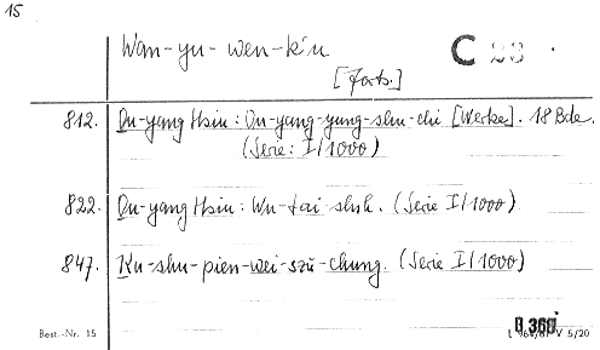 15
Wan-yu-wen-k'u C 23
[Forts.]
812. Ou-yang Hsiu: Ou-yang-yung-shu-chi [Werke]. 18 Bde.
(Serie: I/1000)
822. Ou-yang Hsiu: Wu-tai shih. (Serie I/1000)
847. Ku-shu-pien-wei-szŭ-chung. (Serie I/1000)
Best.-Nr. 15 V 5/20